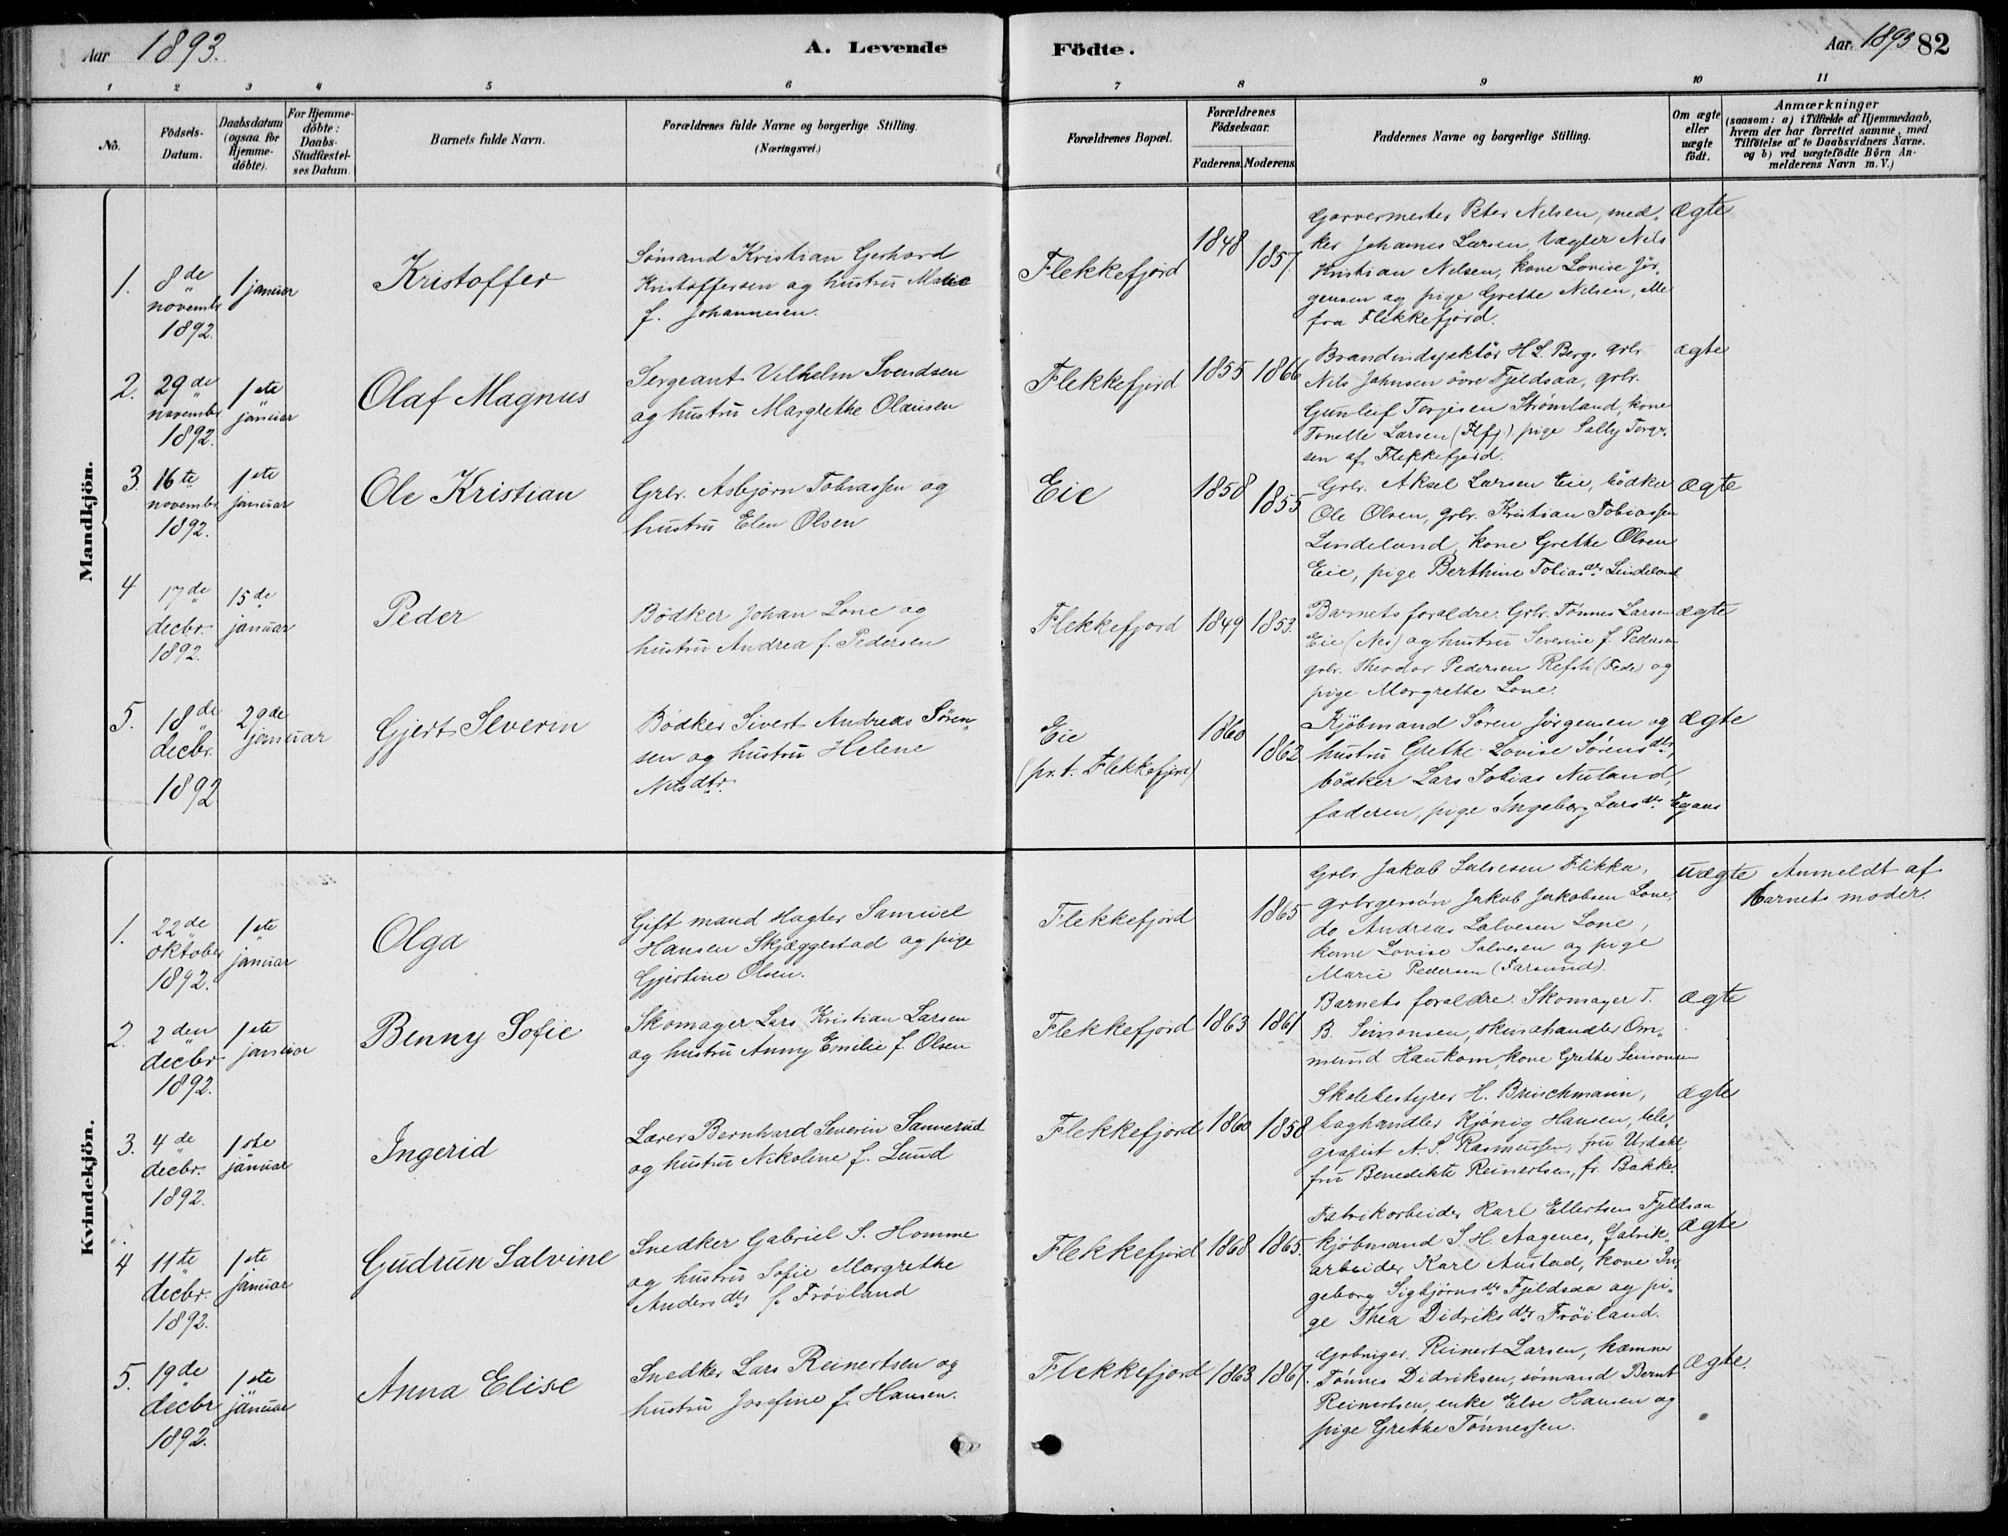 Aar 1893.
A. Levende Födte.
Aar 1893 82
1 2 3 4 5 6 7 8 9 10 11
No.
Födsels-Datum.
Daabsdatum (ogsaa for Hjemme-döbte).
For Hjemme-döbte: Daabs-Stadfæstel-ses Datum.
Barnets fulde Navn.
Forældrenes fulde Navne og borgerlige Stilling. (Næringsvei.)
Forældrenes Bopæl.
Forældrenes Födselsaar.
Faderens. Moderens.
Faddernes Navne og borgerlige Stilling.
Om ægte eller uægte födt.
Anmærkninger
(saasom: a) i Tilfælde af Hjemmedaab,
hvem der har forrettet samme, med
Tilföielse af to Daabsvidners Navne.
og b) ved uægtefödte Börn An-
melderens Navn m. V.)
Mandkjön.
1. 8de novembr 1892. 1 januar
Kristoffer
Sømand Kristian Gerhard
Kristoffersen og hustru Malie
f. Johannesen.
Flekkefjord
1848 1857.
Garvermester Peter Nilsen, med-
ker Johannes Larsen, Vægter Nils
Kristian Nilsen, kone Lovise Jør-
gensen og pige Grethe Nilsen, alle
fra Flekkefjord.
ægte
2. 29de novembr 1892. 1ste januar
Olaf Magnus
Sergeant Vilhelm Svendsen
og hustru Margrethe Olausen
Flekkefjord
1855 1866
Brandindspektör H. L. Berg, grbr.
Nils Johnsen övre Fjeldsaa, grbr.
Gunleif Torjesen Strømland, kone
Tonette Larsen (Flfj.) pige Sally Torger-
sen af Flekkefjord.
ægte
3. 16te novembr 1892. 1ste januar
Ole Kristian
Grbr. Asbjørn Tobiassen og
hustru Elen Olsen
Eie
1858 1855
Grbr. Aksel Larsen Eie, bödker
Ole Olsen, grbr. Kristian Tobiassen
Lindeland, kone Grethe Olsen
Eie, pige Berthine Tobiasdtr Lindeland
ægte
4 17de decbr. 1892. 15de januar
Peder
Bödker Johan Lone og
hustru Andrea f. Pedersen
Flekkefjord
1849 1853.
Barnets foraldre. Grbr. Tønnes Larsen
Eie (Nes) og hustru Severine f. Pedersen
grbr. Theodor Pedersen Refsti (Fede) og
pige Margrethe Lone.
ægte
5. 18de decbr. 1892 29de januar
Gjert Severin
Bödker Sivert Andreas Sören-
sen og hustru Helene
Nilsdtr.
Eie
(pr. t. Flekkefjord)
1860 1862
Kjöbmand Sören Jørgensen og
hustru Grethe Lovise Sörensdtr,
bödker Lars Tobias Nuland,
faderen, pige Ingeborg Larsdtr Egaas
ægte
Kvindekjön.
1. 22de oktober 1892. 1ste januar
Olga
Gift mand Samuel
Hansen Skjæggestad og pige
Gjertine Olsen.
Flekkefjord
1865
Grbr Jakob Salvesen Flikka,
Jakob Jakobsen Lone,
do Andreas Salvesen Lone,
kone Lovise Salvesen og pige
Marie Pedersen (Farsund).
uægte
Anmeldt af
barnets moder.
2. 2den decbr. 1892. 1ste januar
Benny Sofie
Skomager Lars Kristian Larsen
og hustru Anny Emilie f. Olsen
Flekkefjord
1863 1861
Barnets foraldre. Skomager T.
B. Simonsen, Om-
mund Haukom, kone Grethe Simonsen
ægte
3. 4de decbr. 1892. 1ste januar
Ingerid
Lærer Bernhard Severin Sannerud
og hustru Nikoline f. Lund
Flekkefjord
1860 1858
Skolebestyrer H. Bruschmann,
boghandler Kjönig Hansen, tele-
grafist A. S. Rasmussen, fru Urdahl
fru Benedikte Reinertsen, fr. Bakke.
ægte
4 11te decbr. 1892. 1ste januar
Gudrun Salvine
Snedker Gabriel S. Homme
og hustru Sofie Margrethe
Andersdtr f. Fröiland
Flekkefjord
1868 1865.
Fabrikarbeider Karl Ellertsen Fjeldsaa
kjöbmand S. H. Aagenes, fabrik-
arbeider Karl Austad, kone In-
geborg Sigbjørnsdtr Fjeldsaa og pi-
ge Thea Didriksdtr Fröiland.
ægte
5. 19de decbr 1892. 1ste januar
Anna Elise
Snedker Lars Reinertsen og
hustru Josefine f. Hansen.
Flekkefjord
1863 1867.
Reinert Larsen,
Tönnes Didriksen, sömand Bernt
Reinertsen, enke Else Hansen og
pige Grethe Tönnessen.
ægte.